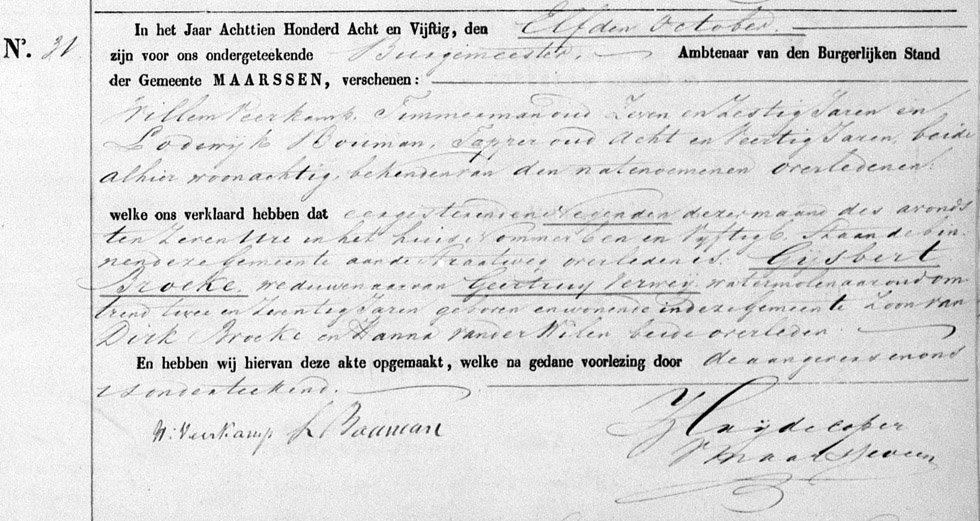 In het Jaar Achttien Honderd Acht en Vijftig, den Elfden October.
N°. 31. zijn voor ons ondergeteekende Burgemeester, Ambtenaar van den Burgerlijken Stand
der Gemeente MAARSSEN, verschenen:
Willem Veerkamp, Timmerman oud Zeven en Zestig Jaren en
Lodewijk Bouman, Tapper oud Acht en Veertig Jaren, beide
alhier woonachtig, bekenden van den natenoemenen overledenen.
welke ons verklaard hebben dat eergisteren den Negenden dezer maand des avonds
ten Zeven Ure in het huis Nommer Een en Vyftig B. staande bin-
nen deze gemeente aan de Straatweg overleden is. Gysbert
Broeke, weduwenaar van Geertruy Verwey, watermolenaar oud om-
trend twee en Zeventig Jaren geboren en wonende in deze gemeente Zoon van
Dirk Broeke en Hanna van der Wilen beide overleden
En hebben wij hiervan deze akte opgemaakt, welke na gedane voorlezing door de aangevers en ons
is onderteekend.
W: Veerkamp L Bouman
Huydecoper
v Maarsseveen